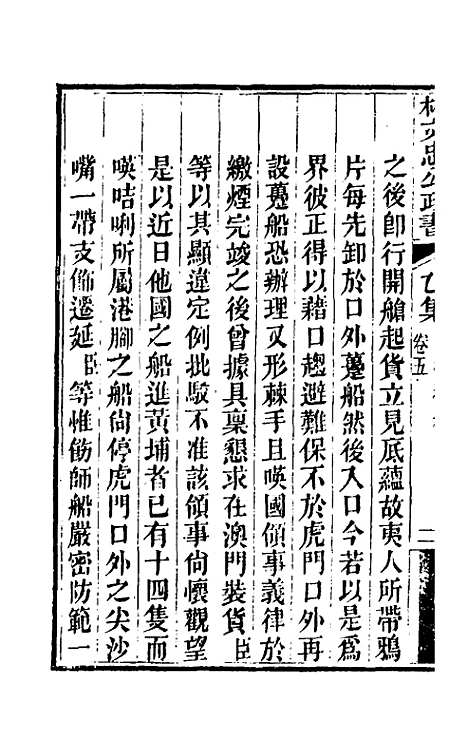 林文忠公政書
乙集
卷五
二
之後卽行開艙起貨立見底蘊故夷人所帶鴉
片每先卸於口外躉船然後入口今若以是爲
界彼正得以藉口趨避難保不於虎門口外再
設躉船恐辦理又形棘手且𠸄國領事義律於
繳煙完竣之後曾據具稟懇求在澳門裝貨臣
等以其顯違定例批駁不准該領事尙懷觀望
是以近日他國之船進黃埔者已有十四隻而
𠸄咭唎所屬港腳之船尙停虎門口外之尖沙
嘴一帶支飾遷延臣等惟飭師船嚴密防範一